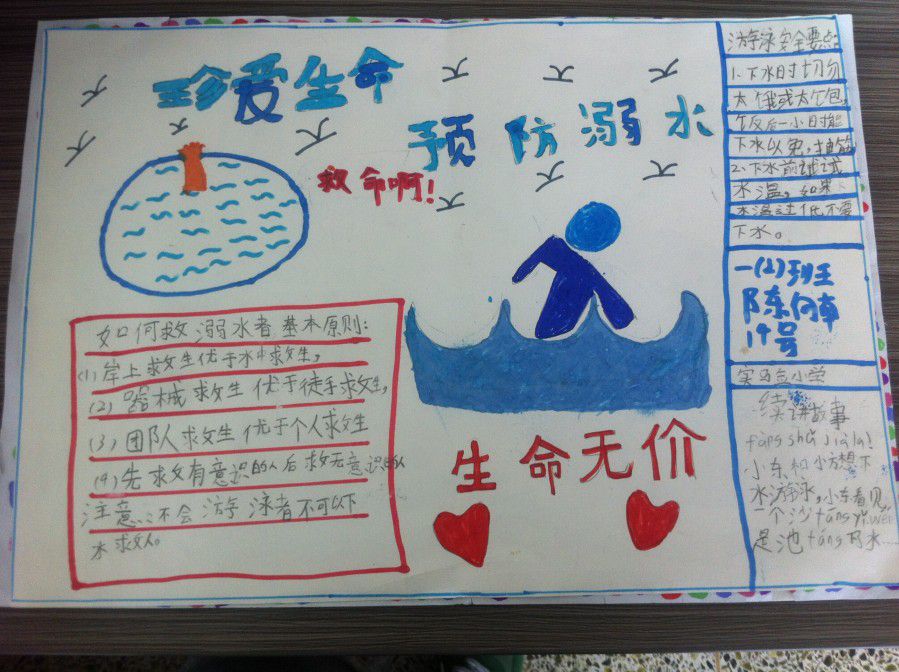 珍爱生命
预防溺水
救命啊!
如何救溺水者基本原则:
(1)岸上救生优于水中救生,
(2)器械救生优于徒手救生,
(3)团队救生优于个人救生
(4)先救有意识的人后救无意识的人
注意:不会游泳者不可以下
水救人。
生命无价
游泳安全要点:
1.下水时切勿
太饿或太饱,
饭后一小时能
下水以免,抽筋
2.下水前试试
水温,如果
水温过低不要
下水。
一(2)班
陈向
19号
小学
续讲故事
fàng shǔ jià la!
小东和小方想下
水游泳,小东看见
一个沙táng yǐ wéi
是池táng的水……